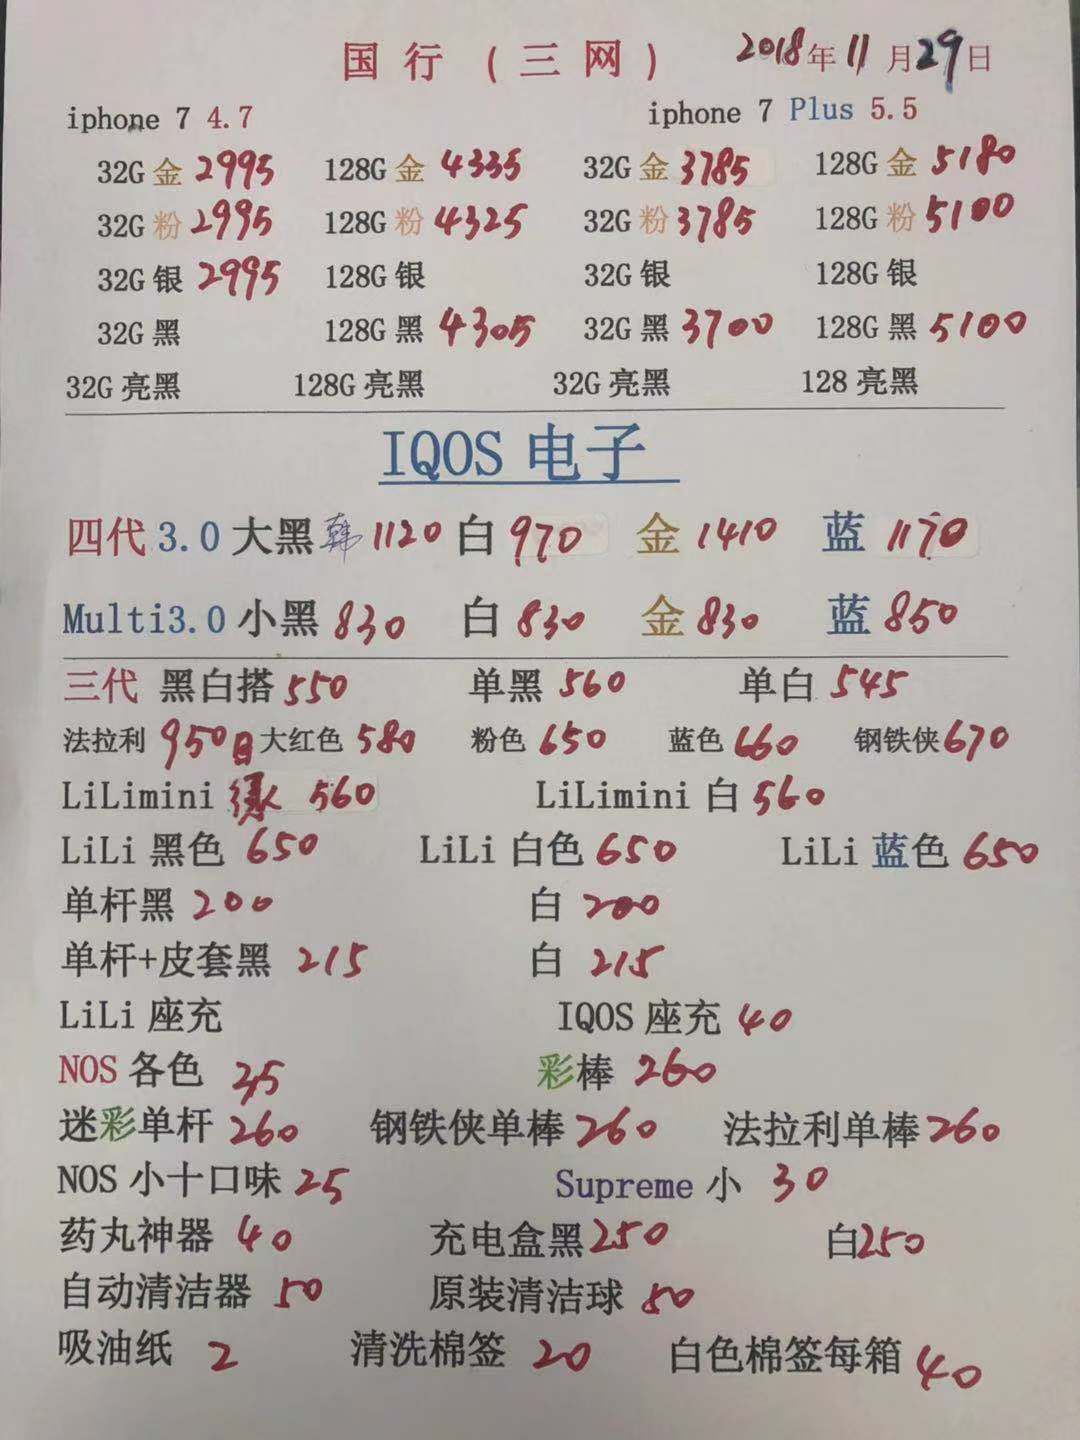 国行(三网) 2018年11月29日
iphone 7 4.7 iphone 7 Plus 5.5
32G金 2995 128G金 4335 32G金 3785 128G金 5180
32G粉 2995 128G粉 4325 32G粉 3785 128G粉 5100
32G银 2995 128G银 32G银 128G银
32G黑 128G黑 4305 32G黑 3700 128G黑 5100
32G亮黑 128G亮黑 32G亮黑 128亮黑
IQOS电子
四代3.0大黑 韩 1120 白 970 金 1410 蓝 1170
Multi3.0小黑 830 白 830 金 830 蓝 850
三代 黑白搭 550 单黑 560 单白 545
法拉利 950日 大红色 580 粉色 650 蓝色 660 钢铁侠 670
LiLimini 560 LiLimini白 560
LiLi黑色 650 LiLi白色 650 LiLi蓝色 650
单杆黑 200 白 200
单杆+皮套黑 215 白 215
LiLi座充 IQOS座充 40
NOS各色 35 彩棒 260
迷彩单杆 260 钢铁侠单棒 260 法拉利单棒 260
NOS小十口味 25 Supreme小 30
药丸神器 40 充电盒黑 250 白 250
自动清洁器 50 原装清洁球 80
吸油纸 2 清洗棉签 20 白色棉签每箱 40